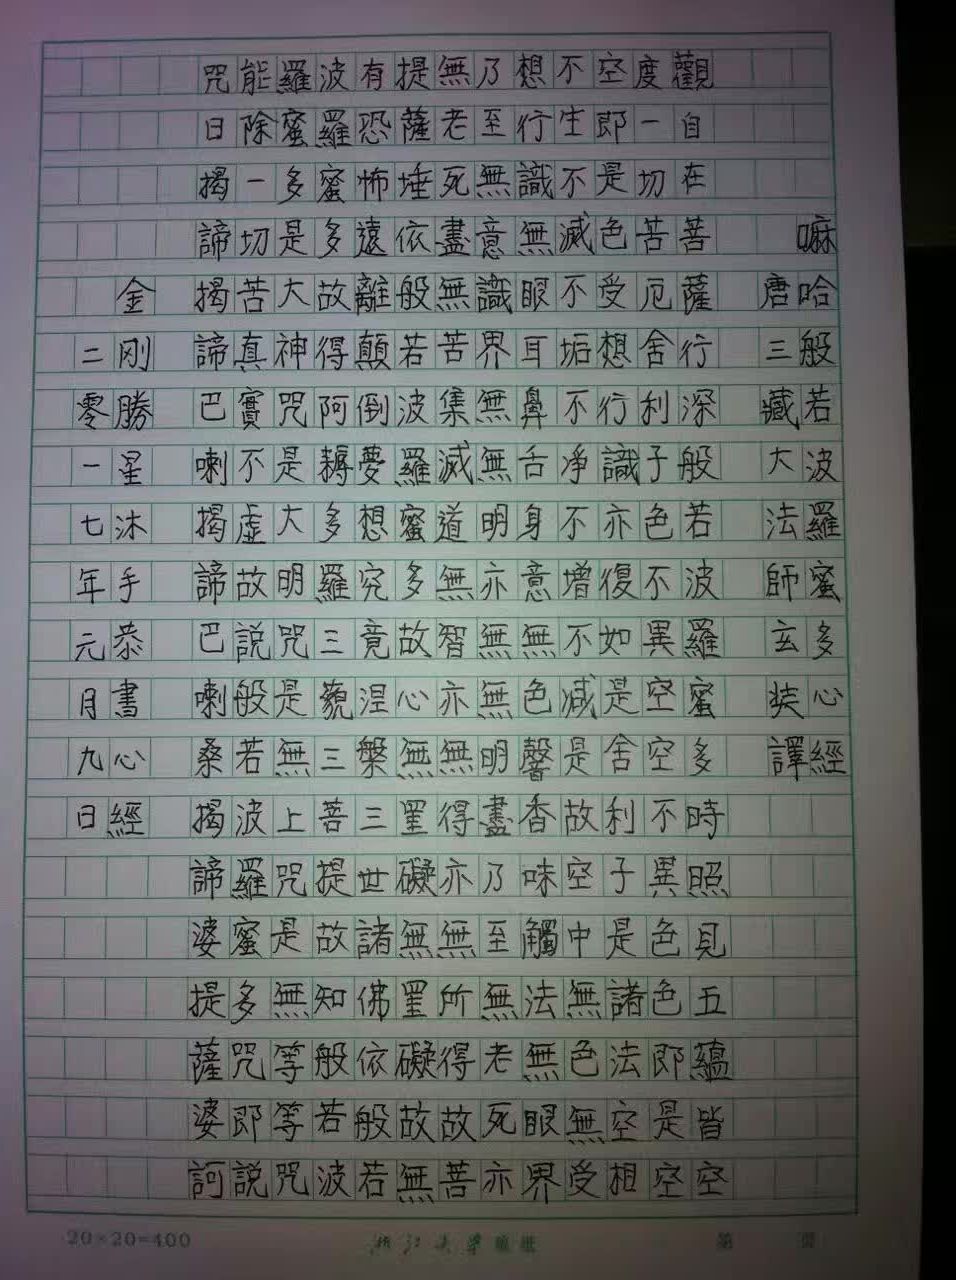 嘛哈般若波羅蜜多心經
唐三藏大法師玄奘譯
觀自在菩薩行深般若波羅蜜多時照見五蘊皆空
度一切苦厄舍利子色不異空空不異色色即是空
空即是色受想行識亦復如是舍利子是諸法空相
不生不滅不垢不淨不增不減是故空中無色無受
想行識無眼耳鼻舌身意無色馨香味觸法無眼界
乃至無意識界無無明亦無無明盡乃至無老死亦
無老死盡無苦集滅道無智亦無得亦無所得故菩
提薩埵依般若波羅蜜多故心無罣礙無罣礙故無
有恐怖遠離顛倒夢想究竟涅槃三世諸佛依般若
波羅蜜多故得阿耨多羅三藐三菩提故知般若波
羅蜜多是大神咒是大明咒是無上咒是無等等咒
能除一切苦真實不虛故説般若波羅蜜多咒即説
咒日揭諦揭諦巴喇揭諦巴喇桑揭諦婆提薩婆訶
金刚勝星沐手恭書心經
二零一七年元月九日
20×20=400
浙江大學